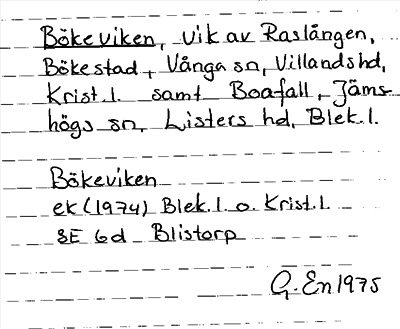 Bökeviken, vik av Raslången,
Bökestad, Vånga sn, Villands hd,
Krist. l. samt Boafall, Jäms-
högs sn, Listers hd, Blek. l.
Bökeviken
ek (1974) Blek. l. o. Krist. l
3E 6d Blistorp
G. En 1975